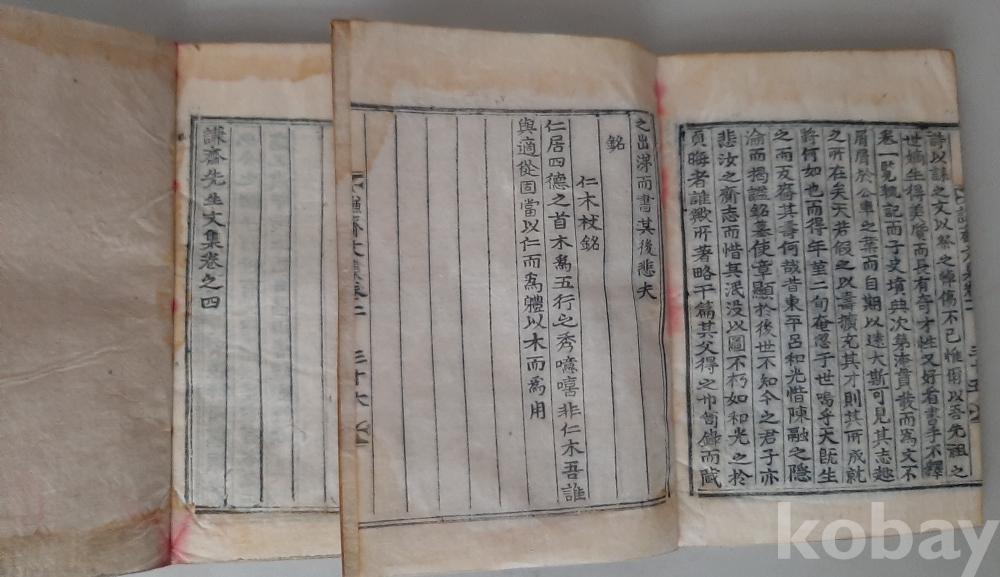 詩以誄之文以祭之悼傷不已惟爾以吾先祖之
世嫡坐得美質而長有奇才性又好看書手不釋
卷一覽輒記而子史墳典次第淹貫發而爲文不
屑屑於公車之業而自期以遠大斯可見其志趣
之所在矣天若假之以壽擴充其才則其所成就
將何如也而得年至二旬奄忽于世嗚乎天旣生
之而又嗇其壽何哉昔東平呂和光惜陳融之隱
淪而揭諡銘墓使章顯於後世不知今之君子亦
悲汝之齎志而惜其泯没以圖不朽如和光之於
貞晦者誰歟所著略干篇其父得之巾笥錄而藏
之出涕而書其後悲夫
銘
仁木杖銘
仁居四德之首木爲五行之秀噫嘻非仁木吾誰
與適從固當以仁而爲體以木而爲用
三十六
謙齋先生文集卷之四
kobay